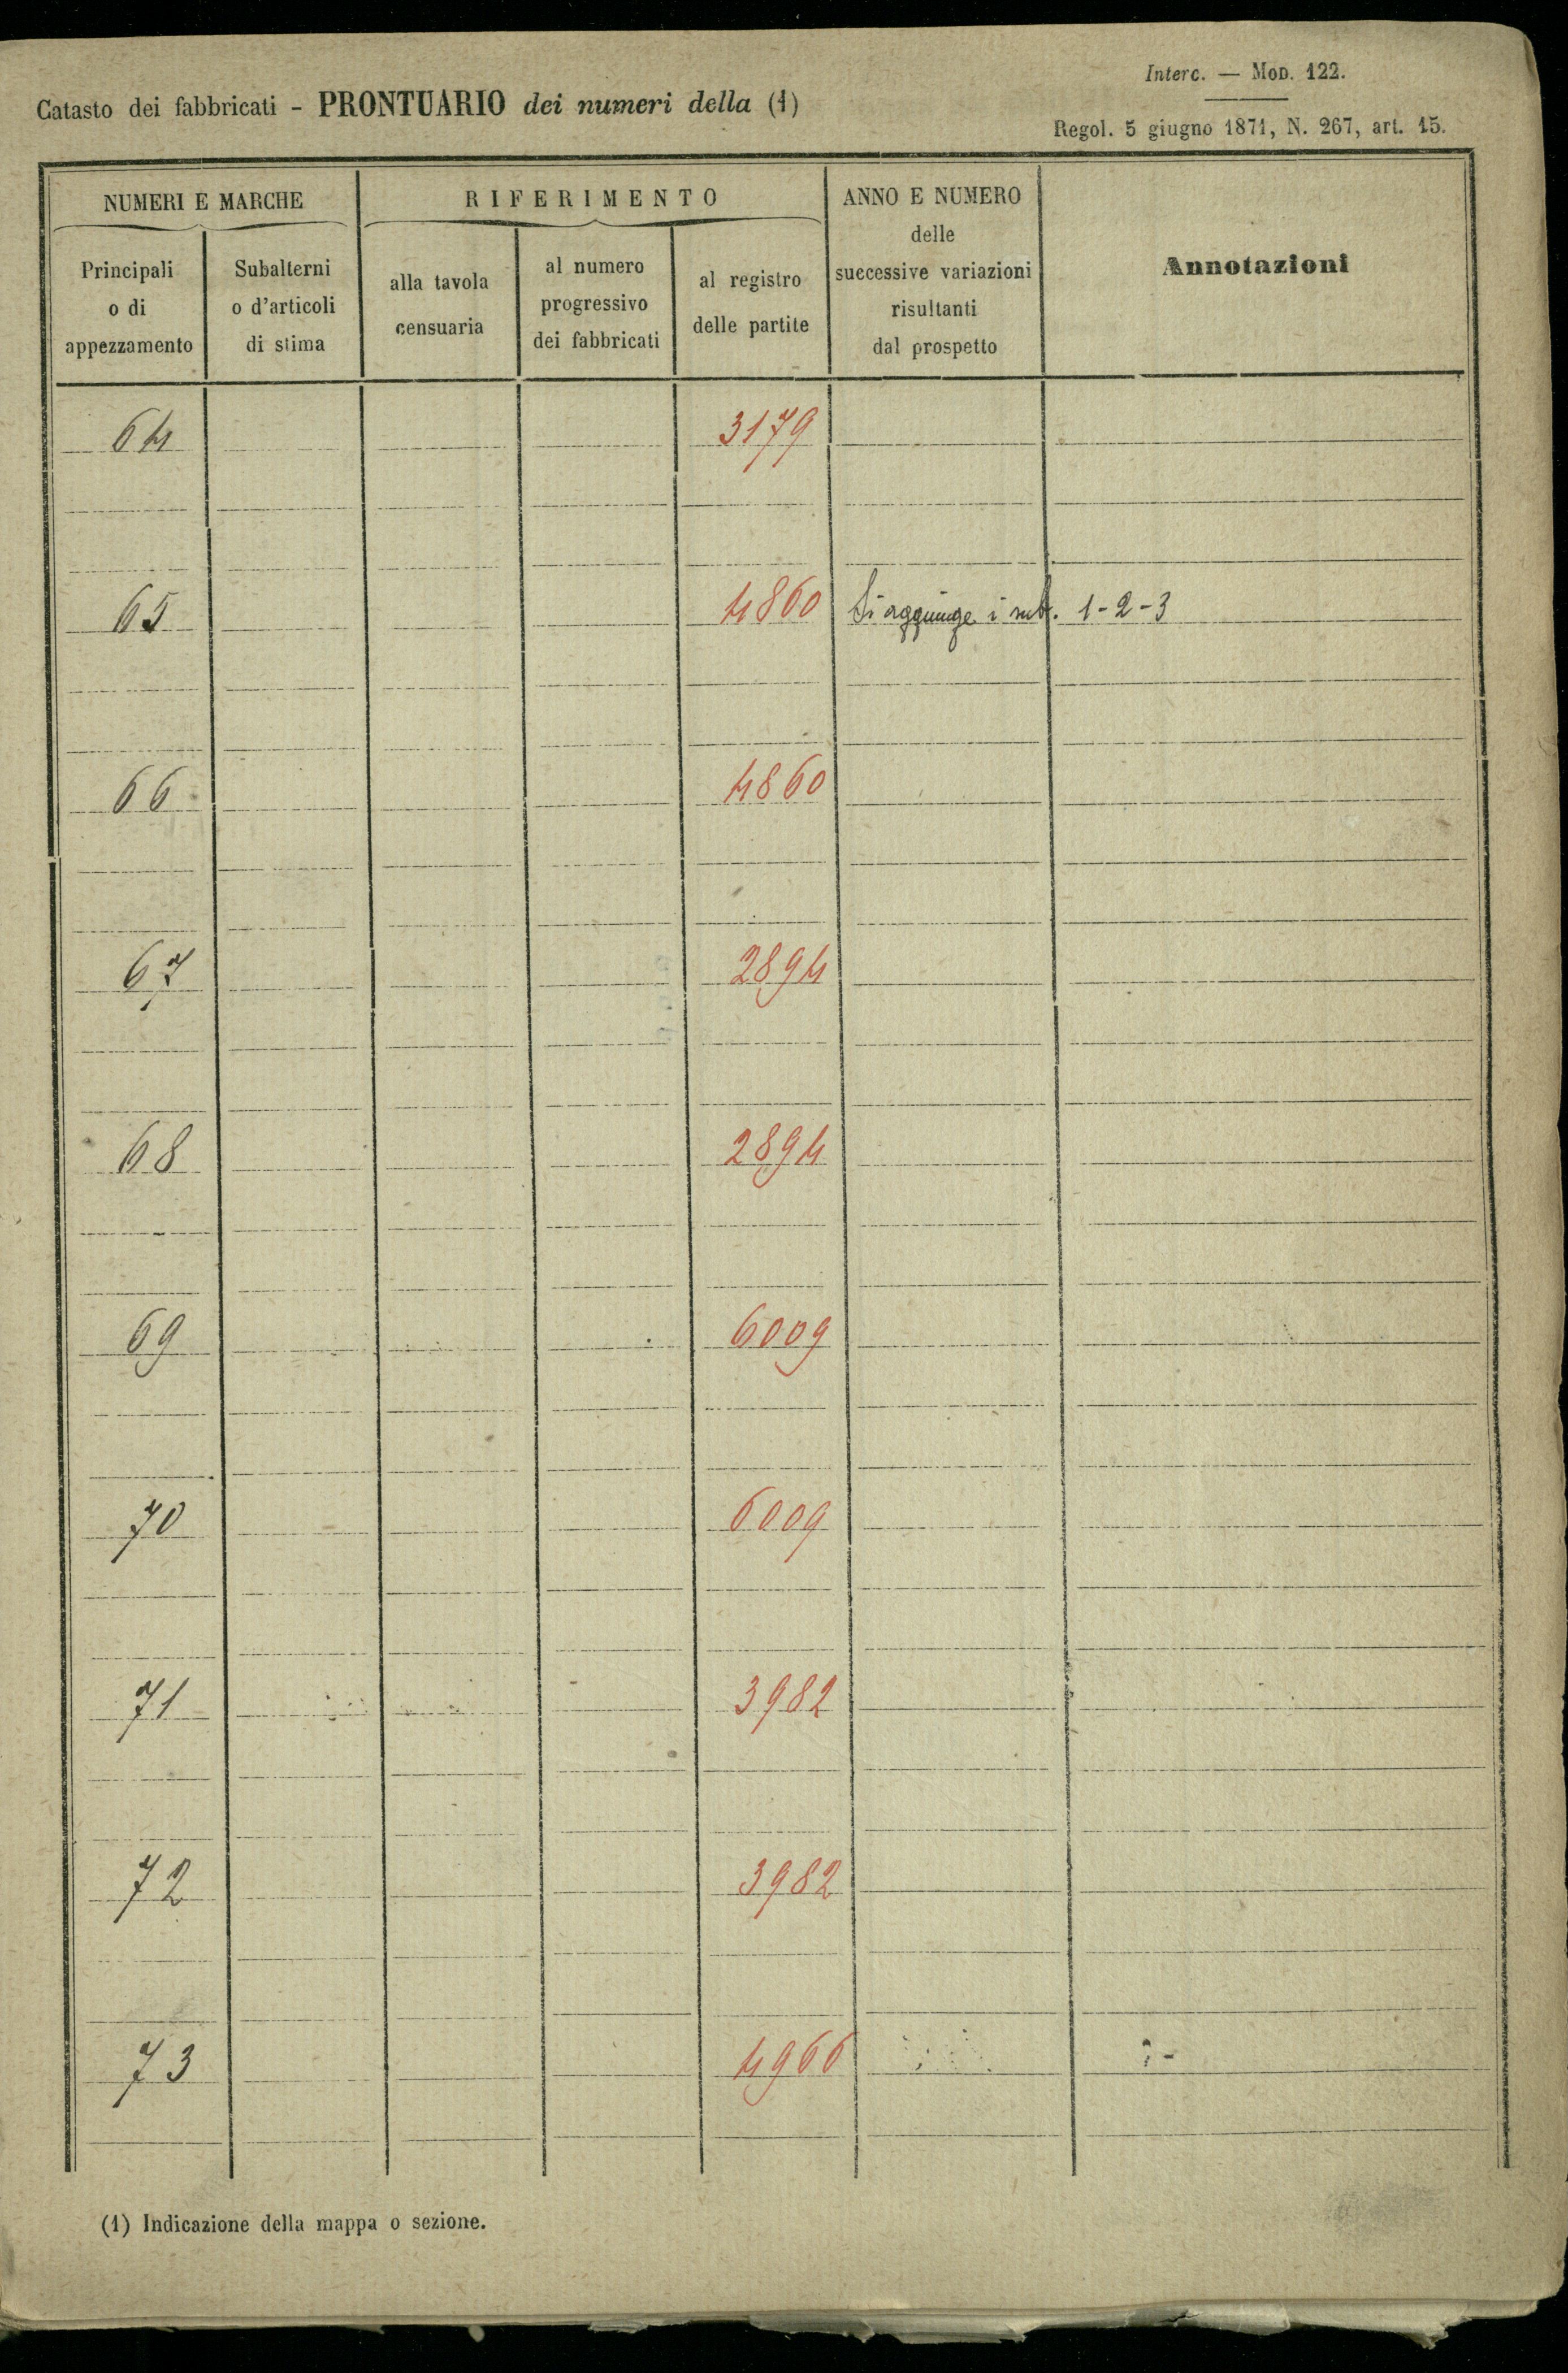 Interc. — Mod. 122.
Catasto dei fabbricati - PRONTUARIO dei numeri della (1)
Regol. 5 giugno 1871, N. 267, art. 15.
NUMERI E MARCHE
RIFERIMENTO
ANNO E NUMERO
delle
successive variazioni
risultanti
dal prospetto
Annotazioni
Principali
o di
appezzamento
Subalterni
o d'articoli
di stima
alla tavola
censuaria
al numero
progressivo
dei fabbricati
al registro
delle partite
64 3179
65 4860 Si aggiunge i sub. 1-2-3
66 4860
67 2894
68 2894
69 6009
70 6009
71 3982
72 3982
73 4966
(1) Indicazione della mappa o sezione.